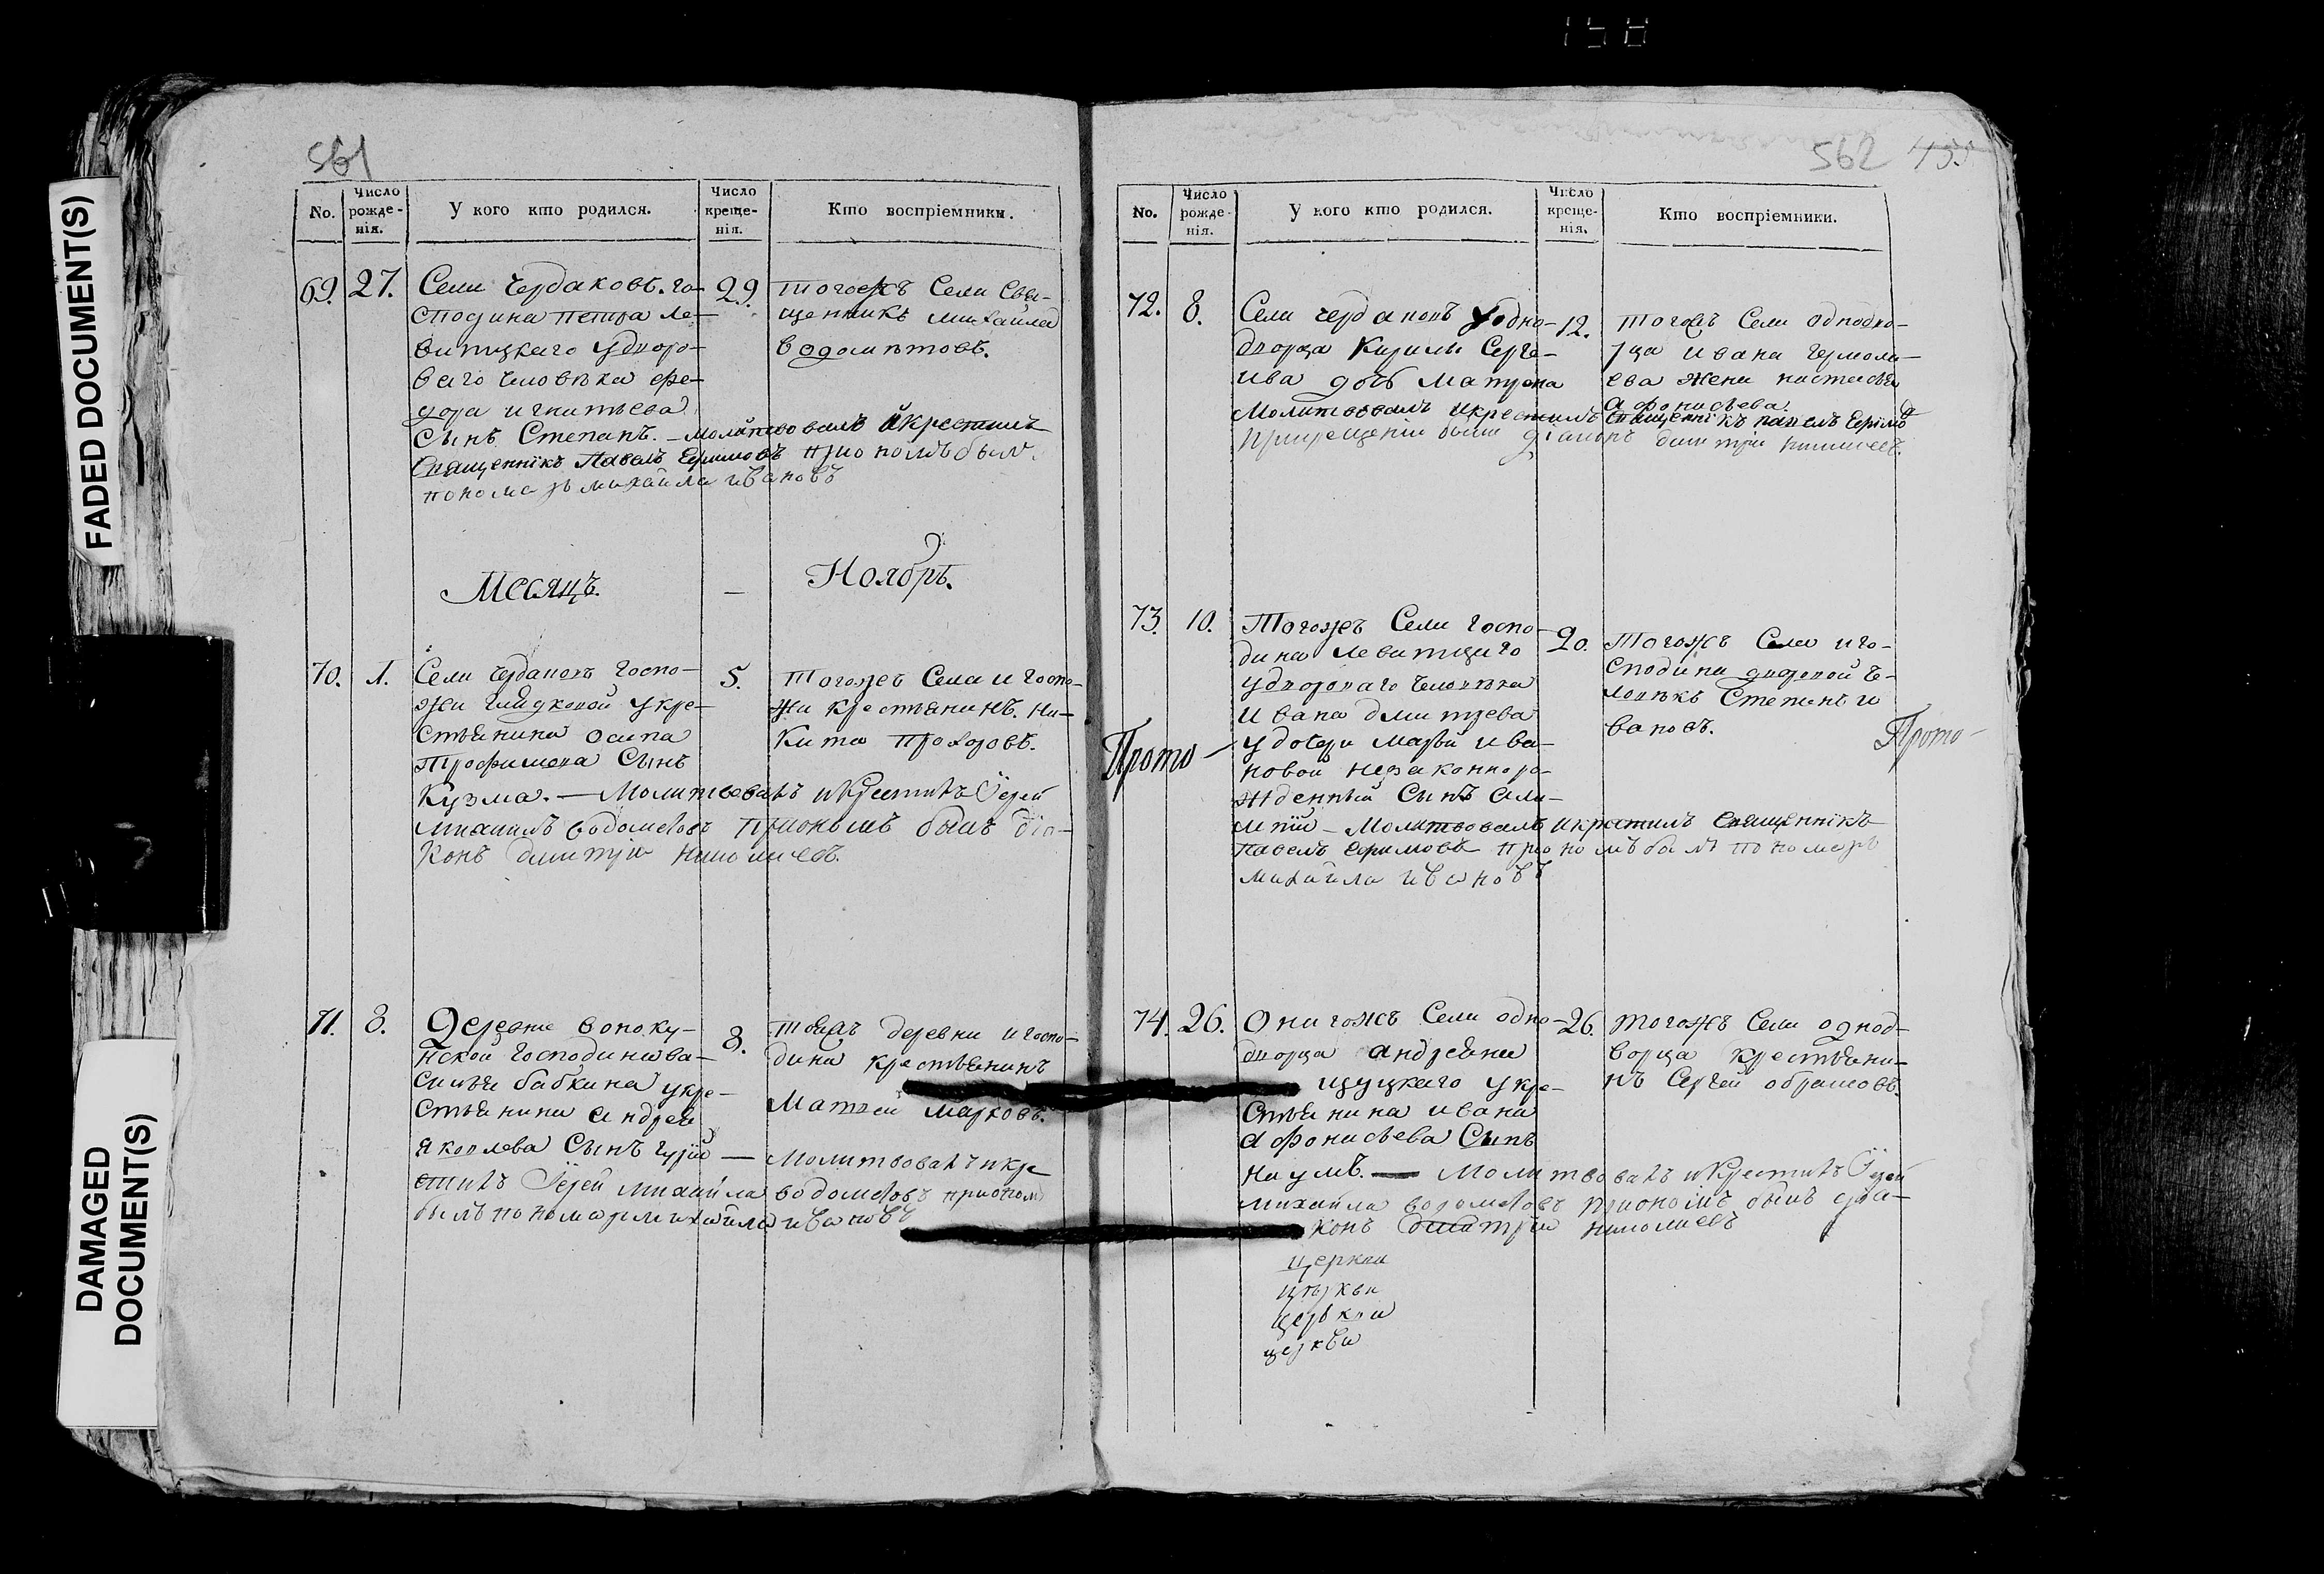 FADED DOCUMENT(S)
DAMAGED
DOCUMENT(S)
561
No.
Число
рожде-
нія.
У кого кто родился.
Число
креще-
нія.
Кто воспріемники.
69. 27.
Села Чердаковъ. го-
сподина петра ле-
витцкаго удворо-
ваго человѣка фе-
дора игнатьева
Сынъ Степанъ. — молитвовалъ икрестилъ
Священнікъ Павелъ Ефимовъ приономъ былъ
пономарь михайла ивановъ
29.
тогожъ Села Свя-
щенникъ михайла
Месяцъ. — Ноябрь.
70. 1.
Села чердаковъ госпо-
жи укре-
стьянина осипа
трофимова Сынъ
Кузма. — Молитвовалъ икрестилъ Іерей
михаилъ приономъ былъ дїа-
конъ дмитрїи
5.
Тогожъ Села игоспо-
жи крестьянинъ. ни-
кита прохоровъ.
71. 8.
Деревне
господина ва-
силья бабкина укре-
стьянина андрея
яковлева Сынъ гурїй — Молитвовалъ икре
стилъ Іерей михайла прионом
былъ пономарь михайла ивановъ
8.
тояжъ деревни игоспо-
дина крестьянинъ
Матвей Марковъ.
562
No.
Число
рожде-
нія.
У кого кто родился.
Число
креще-
нія.
Кто воспріемники.
72. 8.
Села чердаковъ уодно-
дворца Кирилы Серге-
ива дочь Матрона
Молитвовалъ икрестилъ Священнікъ павелъ Ефимо
прикрещеніи былъ діаконъ дмитрїи
12.
тогожъ Села однодво-
рца ивана ермола-
ева жена настасья
афонасьева.
73. 10.
Тогожъ Села госпо-
дина левитцкаго
удворонаго человѣка
ивана дмитрева
удочери марьи ива-
новой незаконноро-
жденный Сынъ али-
мпїй — Молитвовалъ икрестилъ Священнікъ
павелъ ефимовъ приономъ былъ пономарь
михайла ивановъ
20.
тогожъ Села иго-
сподина дворовой че-
ловѣкъ Степанъ и
вановъ.
Прото-
Прото-
74. 26.
Онагожъ Села одно-
дворца андреяна
укре-
стьянина ивана
афонасьева Сынъ
наумъ. — Молитвовалъ икрестилъ Іерей
михайла приономъ былъ дїа-
конъ дмитрїи
26.
тогожъ Села однод-
ворца крестьяни-
нъ Сергей абрамовъ.
церкви
церкви
церькви
церкви